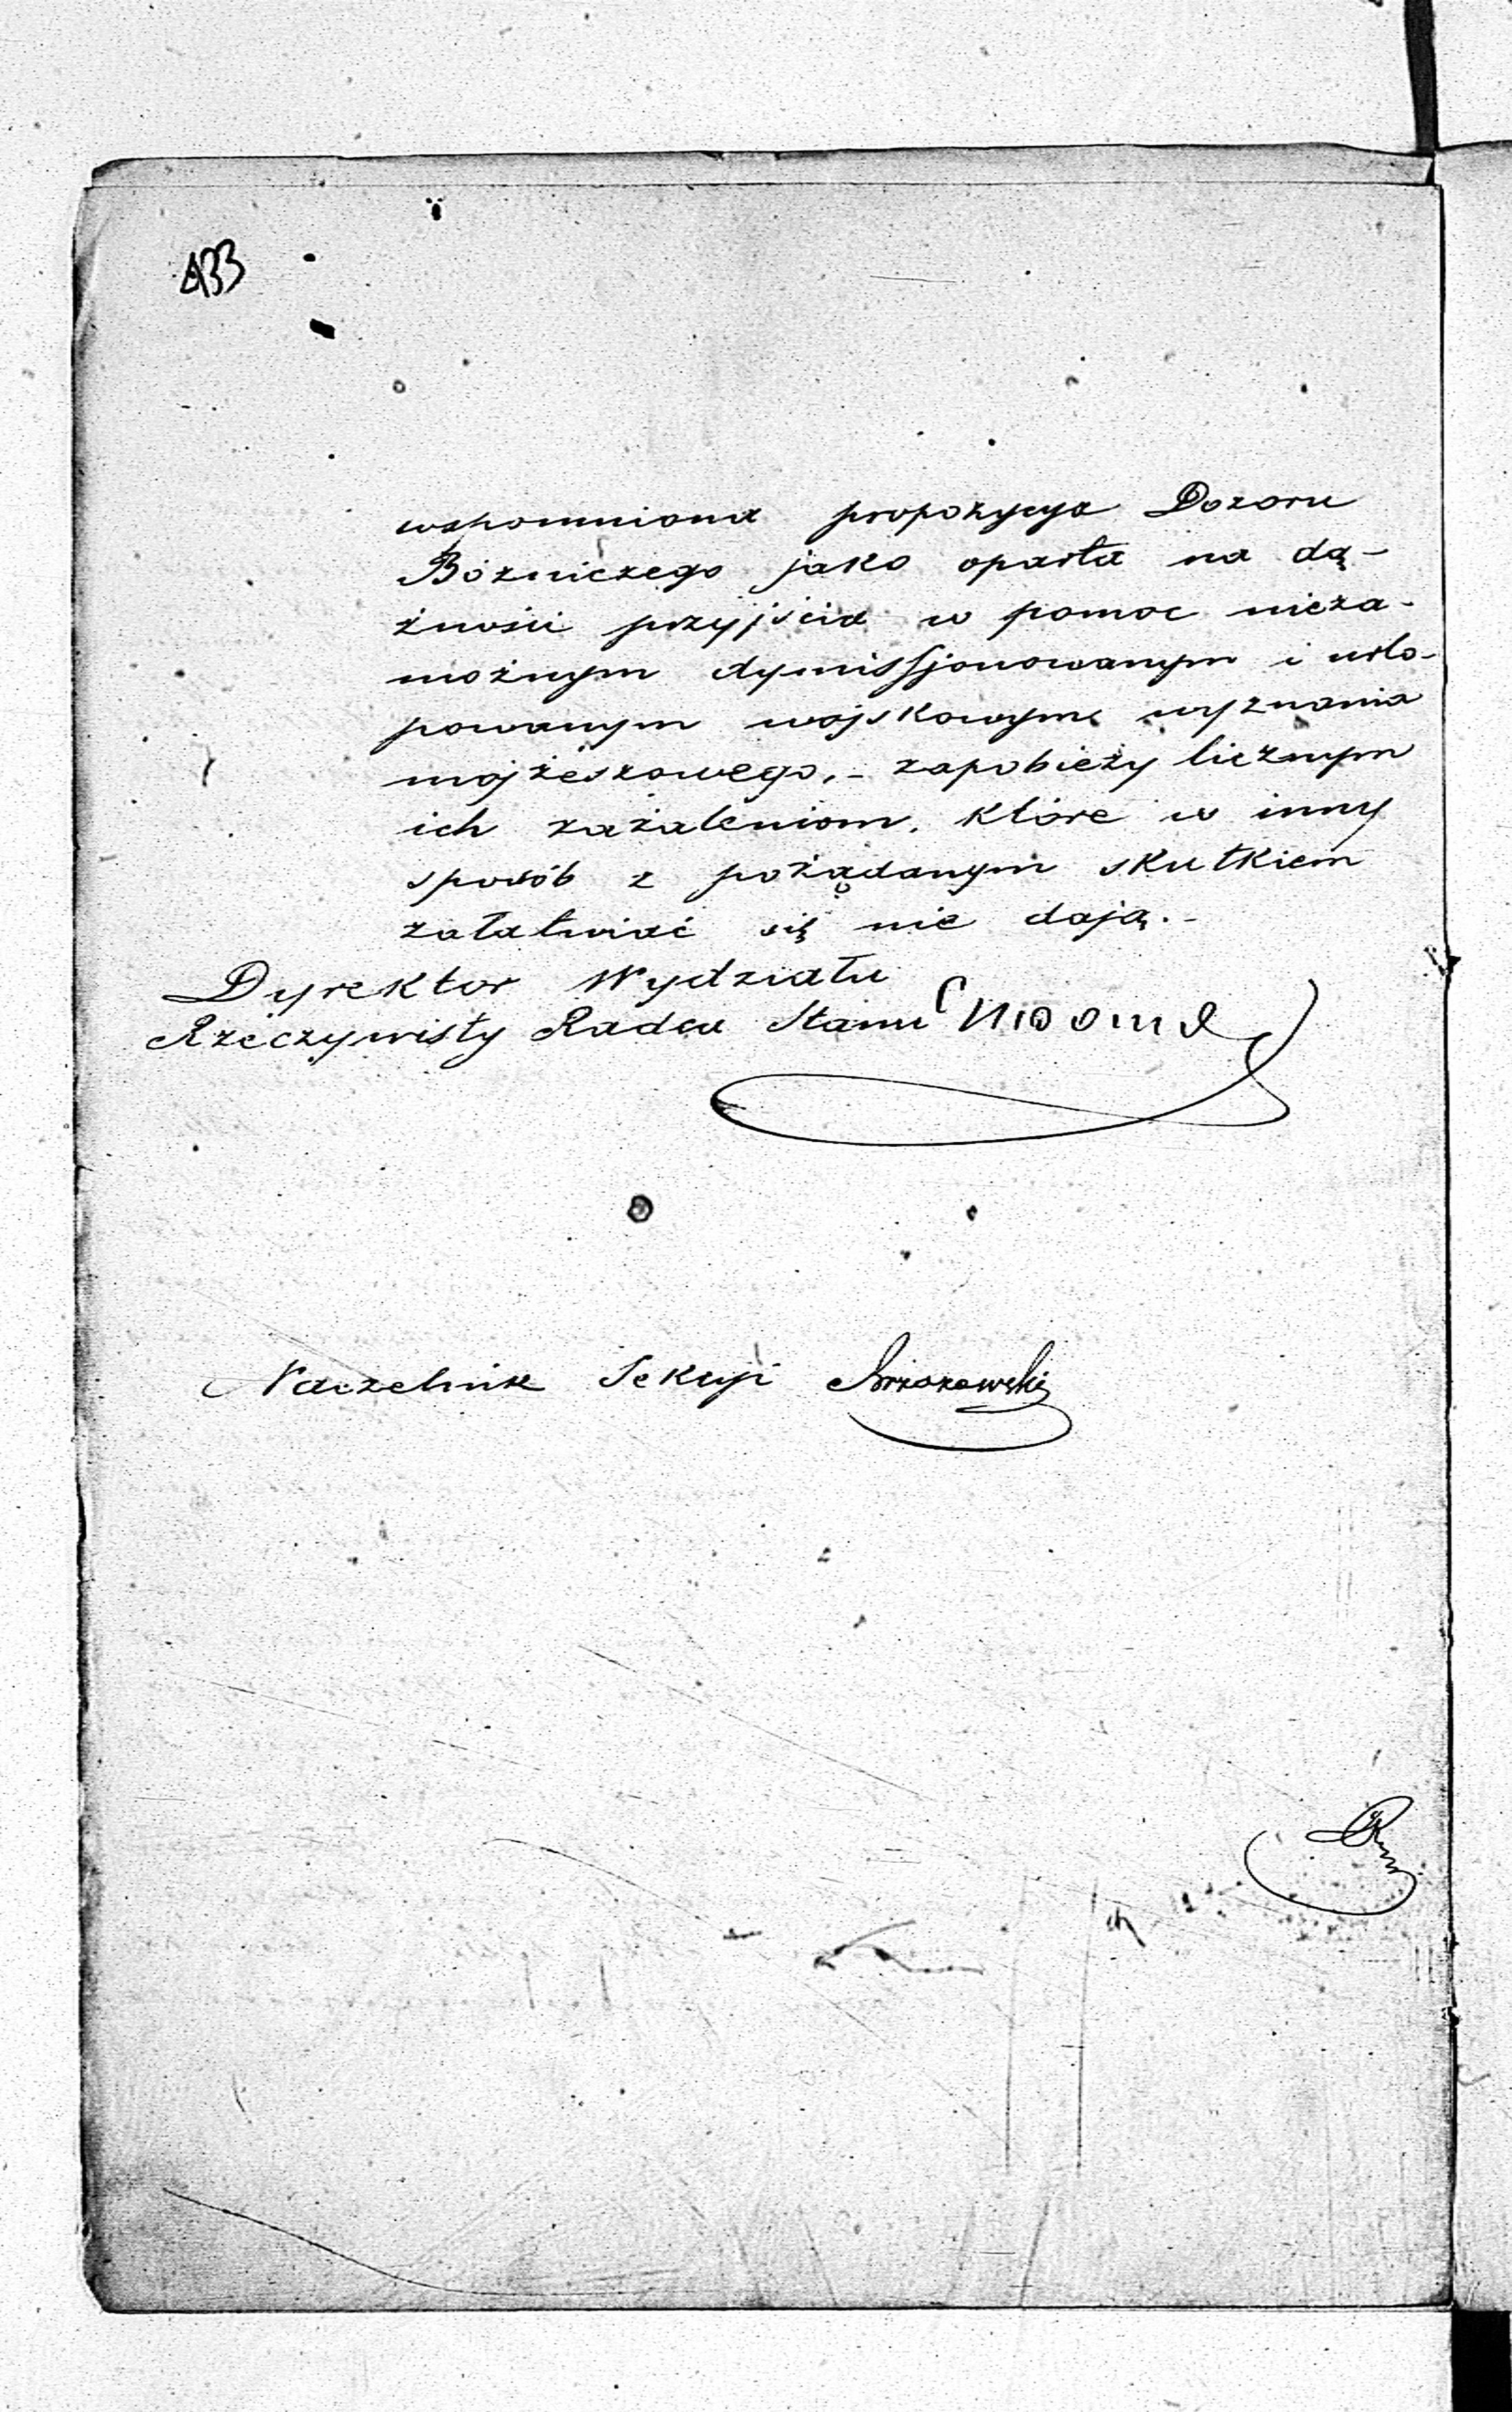 433
wspomniona propozycya Dozoru
Bózniczego jako oparta na dą-
żności przyjścia w pomoc nieza-
możnym dymissjonowanym i urlo-
powanym wojskowym wyznania
mojżeszowego, - zapobieży licznym
ich zażaleniom, które w inny
sposób z pożądanym skutkiem
załatwiać się nie dają. -
Dyrektor Wydziału
Rzeczywisty Radca Stanu
Naczelnik Sekcyi Brzozowski